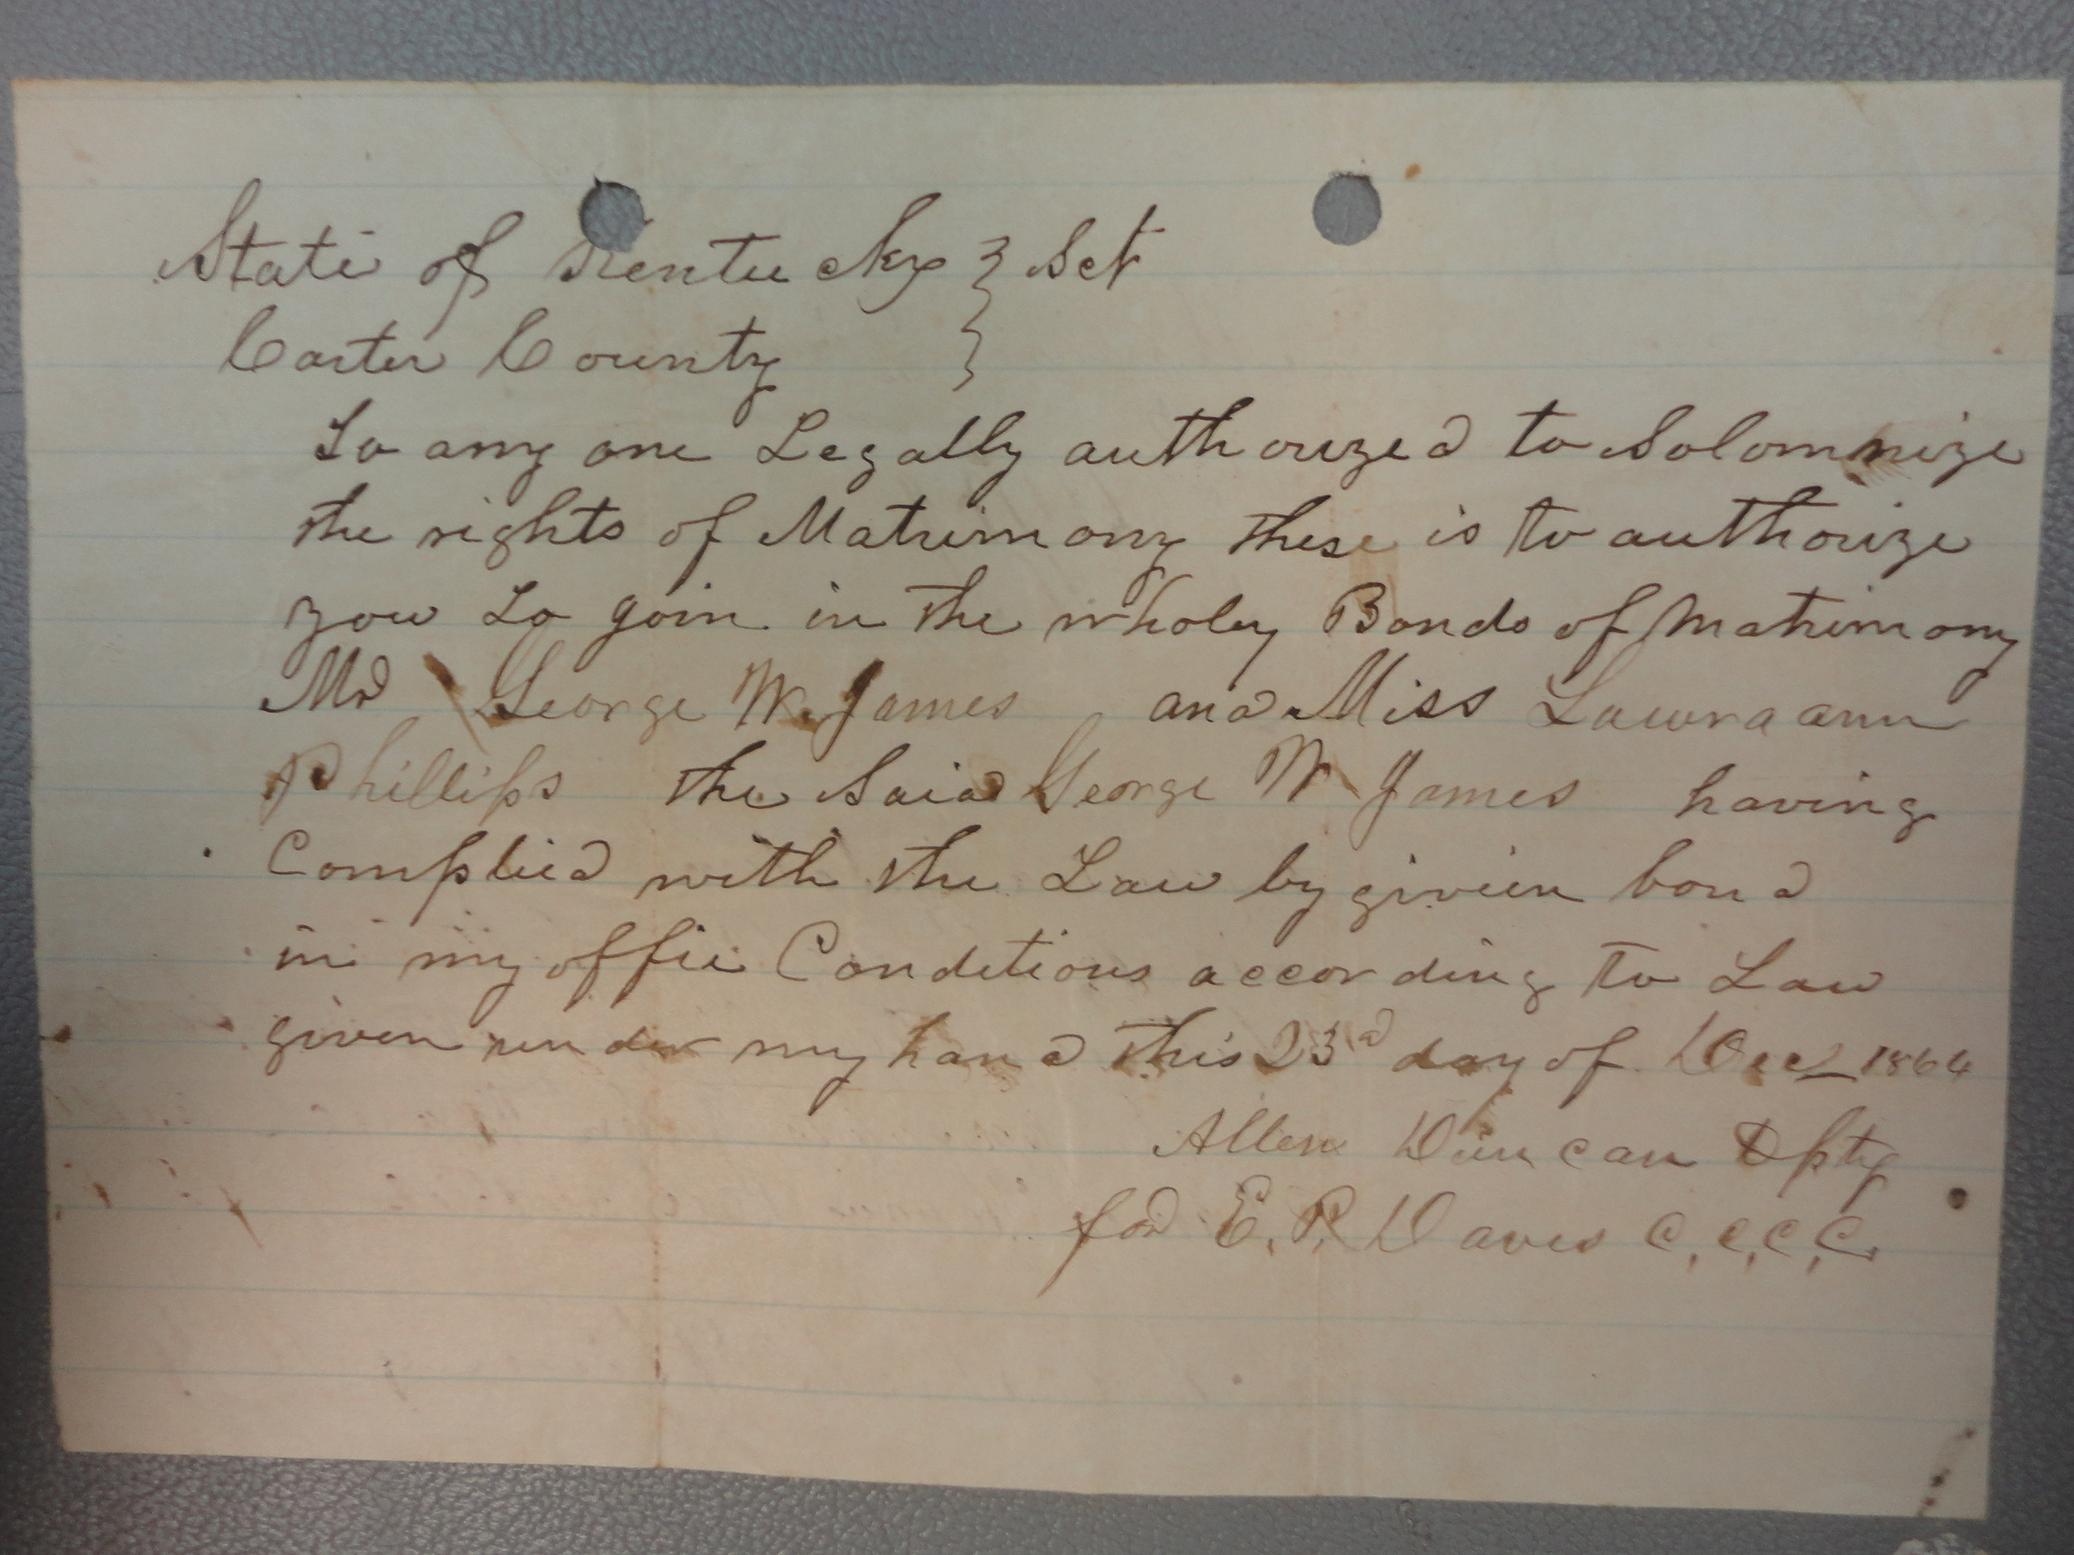 State of Kentucky } Sct
Carter County }
To any one Legally authorized to Solomnize
the rights of Matrimony these is to authorize
you to goin in the wholy Bonds of Matrimony
Mr George W. James and Miss Lawraann
Phillips the Said George W James having
Complied with the Law by givien bond
in my offie Conditions according to Law
given under my hand this 23d day of Dec 1864
Allen Duncan Dpty
for E. R. Davis C.C.C.C.